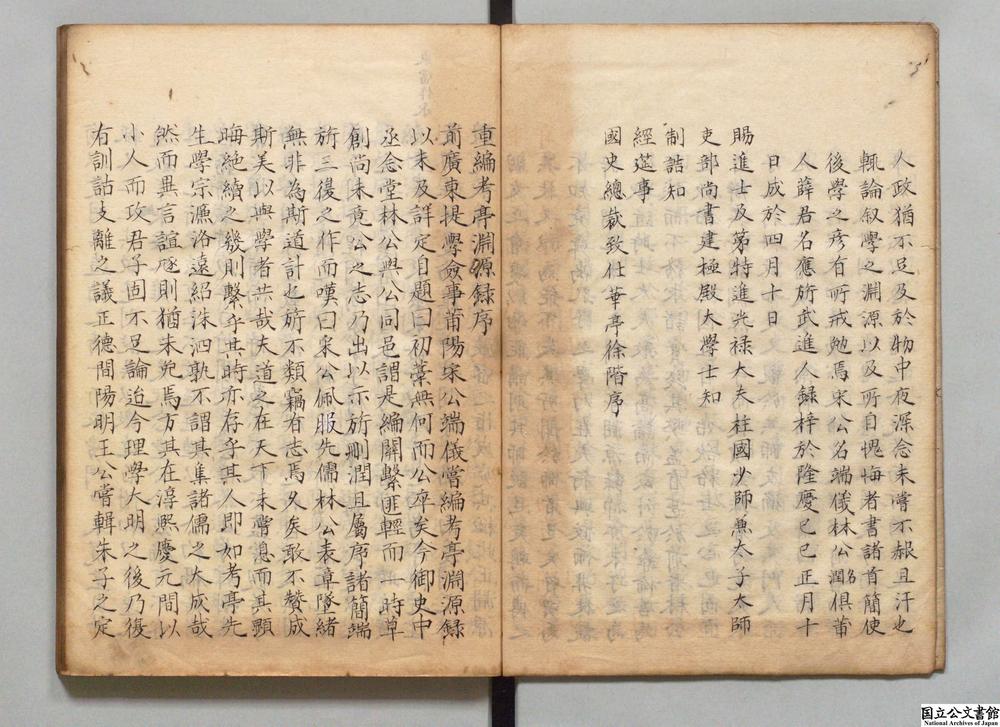 人政猶不足及於物中夜深念未嘗不赧且汗也
輒論叙學之淵源以及所自愧悔者書諸首簡使
後學之彥有所戒勉焉宋公名端儀林公名潤俱莆
人薛君名應旂武進人録梓於隆慶己巳正月十
日成於四月十日
賜進士及第特進光禄大夫柱國少師兼太子太師
吏部尚書建極殿大學士知
制誥知
經筵事
國史總裁致仕華亭徐階序
重編考亭淵源録序
前廣東提學僉事莆陽宋公端儀嘗編考亭淵源録
以未及詳定自題曰初藁無何而公卒矣今御史中
丞念堂林公與公同邑謂是編關繫匪輕而一時草
創尚未竟公之志乃出以示旂刪潤且屬序諸簡端
旂三復之作而嘆曰宋公佩服先儒林公表章墜緒
無非為斯道計也旂不類竊有志焉久矣敢不贊成
斯美以與學者共哉夫道之在天下未嘗息而其顯
晦絶續之幾則繫乎其時亦存乎其人即如考亭先
生學宗濂洛遠紹洙泗孰不謂其集諸儒之大成哉
然而異言諠豗則猶未免焉方其在淳熙慶元間以
小人而攻君子固不足論迨今理學大明之後乃復
有訓詁支離之議正德間陽明王公嘗輯朱子之定
国立公文書館
National Archives of Japan